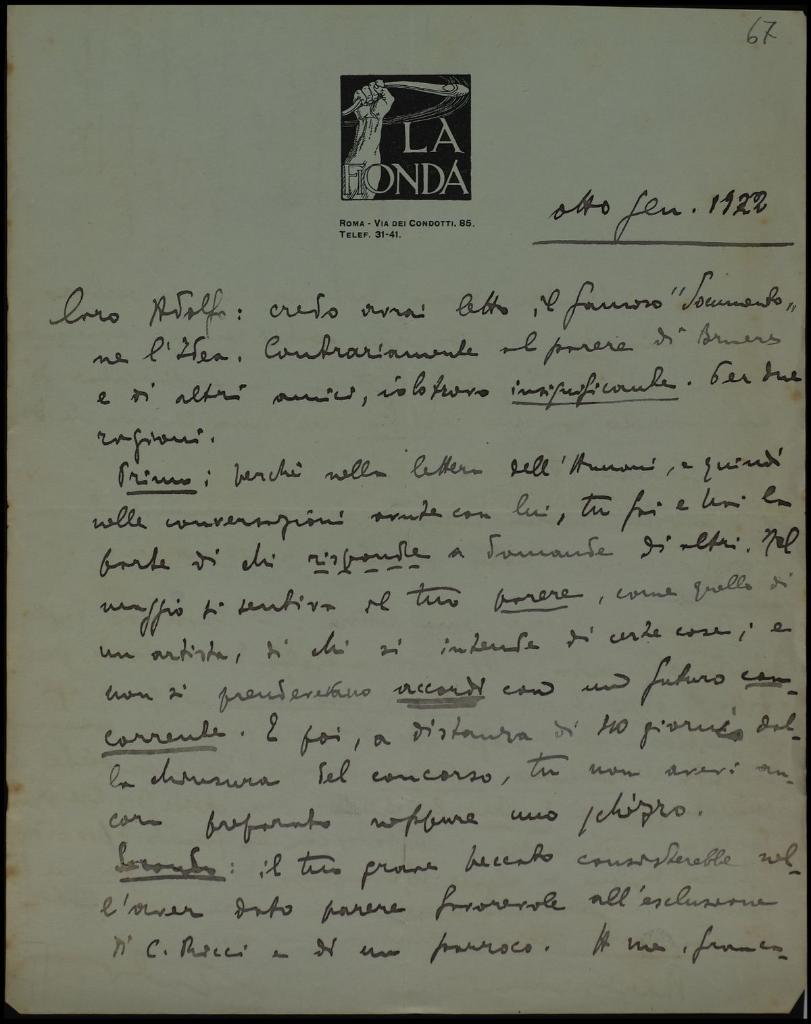 67
LA
FIONDA
ROMA - VIA DEI CONDOTTI, 85.
TELEF. 31-41.
otto Gen. 1922
Caro Adolfo: credo avrai letto il famoso "Documento„
ne l'Idea. Contrariamente al parere di Bruers
e di altri amici, io lo trovo insignificante. Per due
ragioni.
Primo: perché nella lettera dell'Hannoni, e quindi
nelle conversazioni avute con lui, tu fai e hai la
parte di chi risponde a domande di altri. Nel
maggio si sentiva il tuo parere, come quello di
un artista, di chi si intende di certe cose; e
non si prenderevano accordi con un futuro con-
corrente. E poi, a distanza di 40 giorni dal-
la chiusura del concorso, tu non avevi an-
cora preparato neppure uno schizzo.
Secondo: il tuo grave peccato consisterebbe nel-
l'aver dato parere favorevole all'esclusione
di C. Ricci e di un parroco. A me, franca-